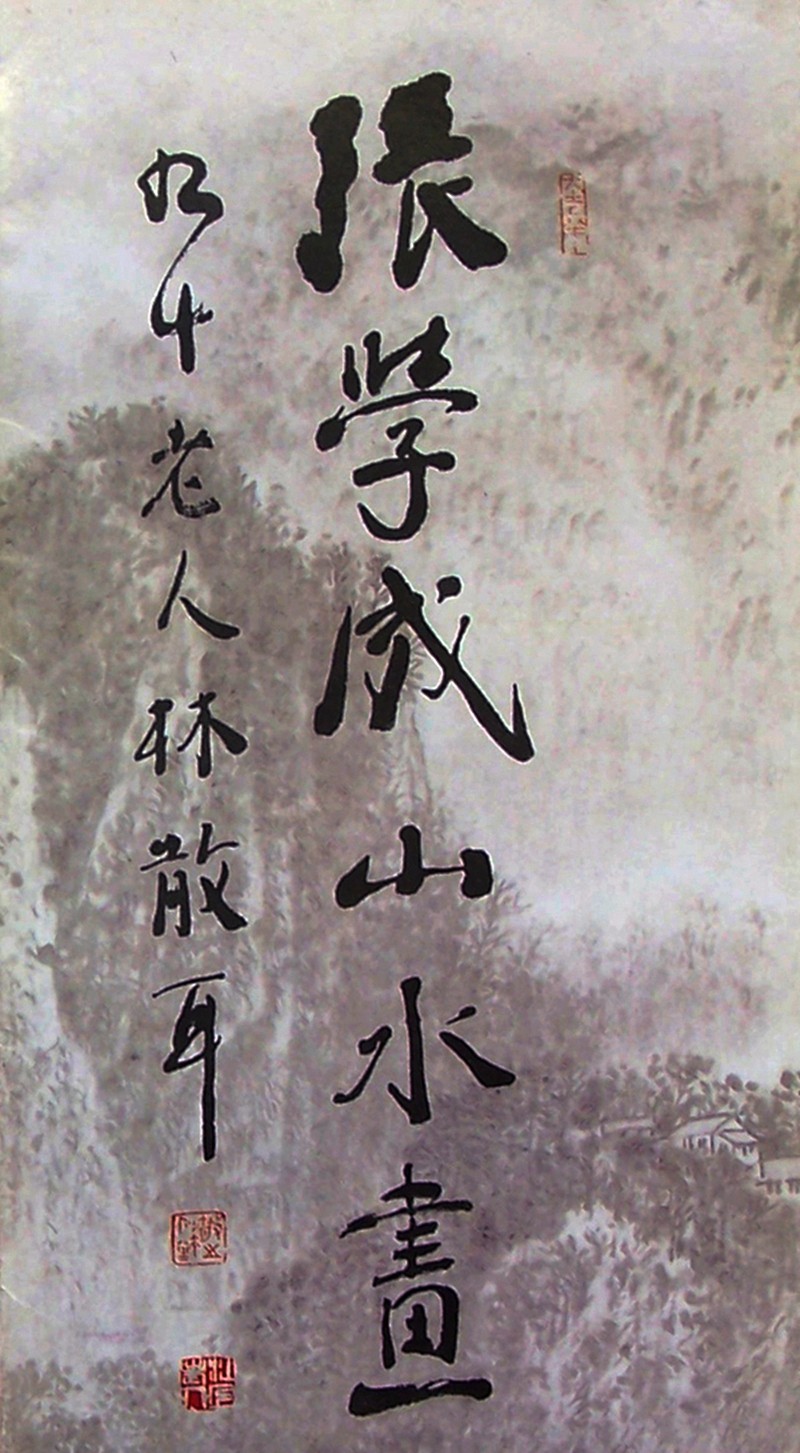 張學成山水畫
九十老人林散耳